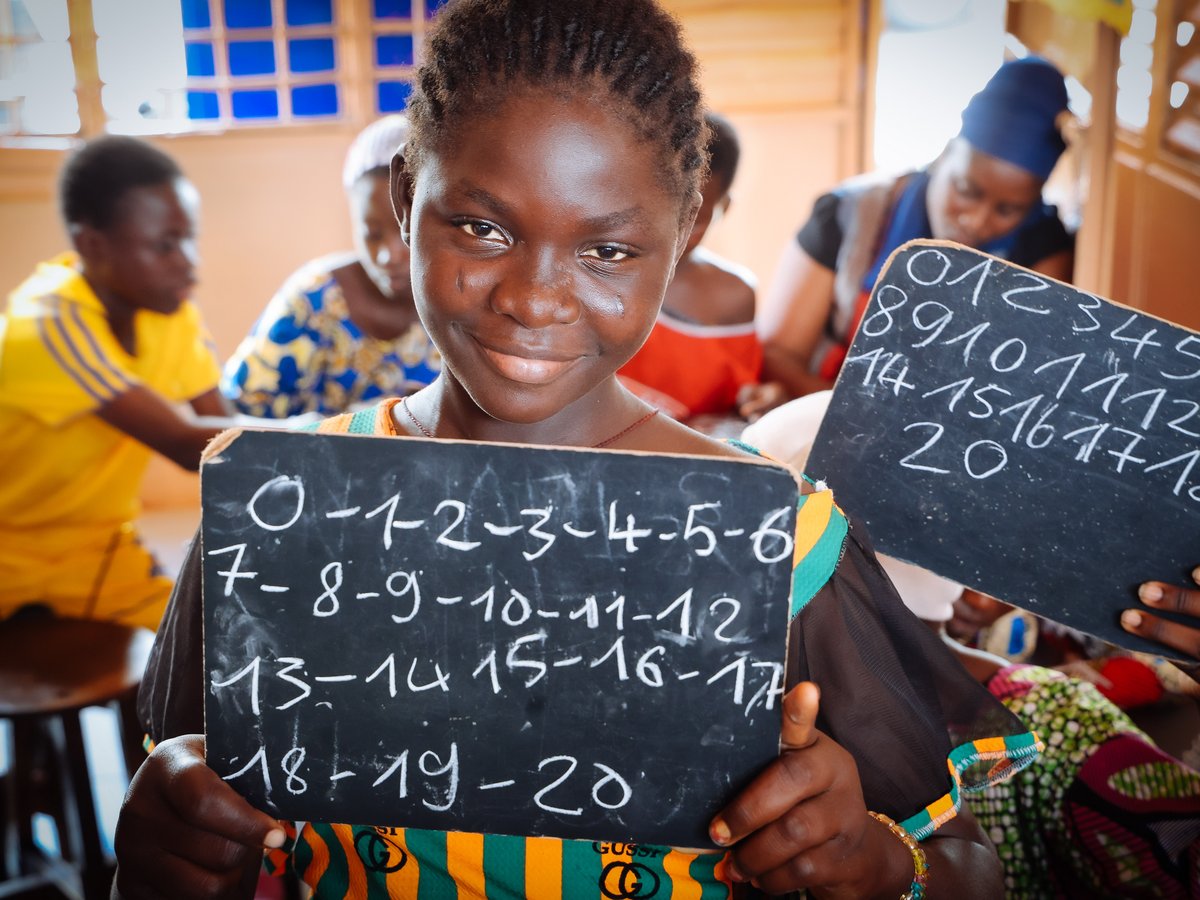 0-1-2-3-4-5-6
7-8-9-10-11-12
13-14 15-16-17
18-19-20
0 1 2 3 4 5
8 9 10 11 12
14 15 16 17
20
GUSSI